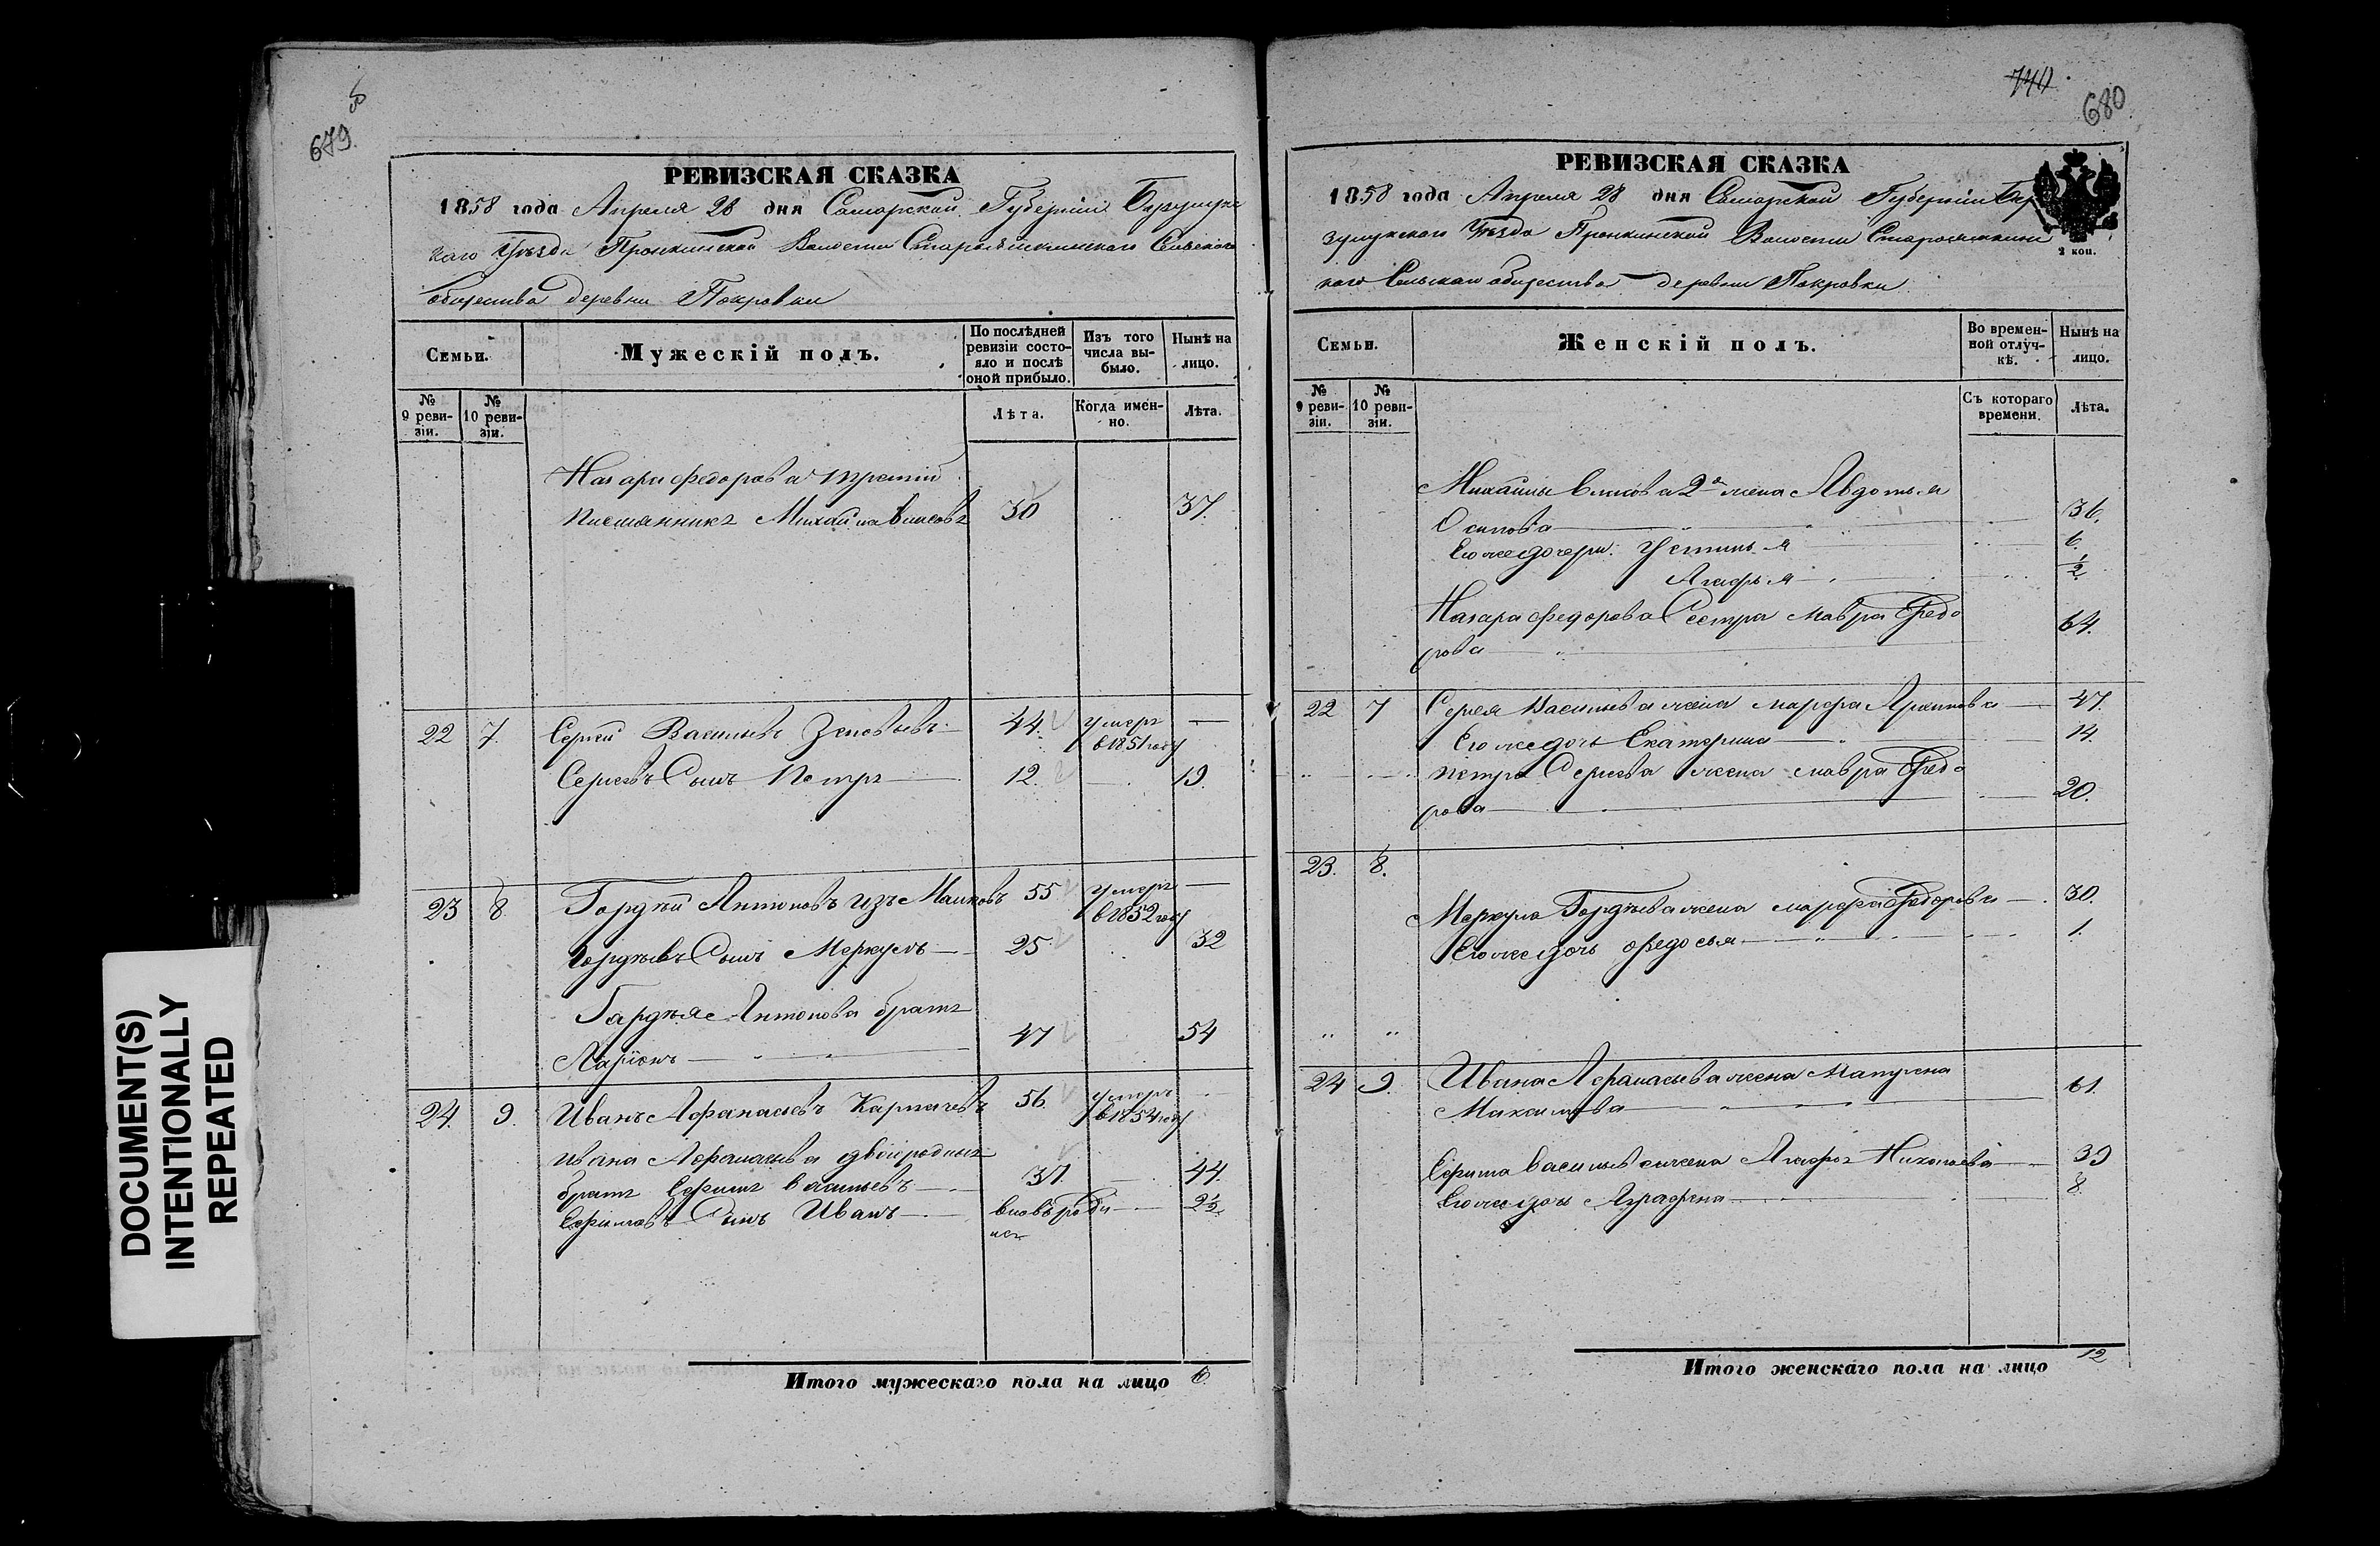 679.
РЕВИЗСКАЯ СКАЗКА
1858 года Апреля 28 дня Самарской Губерніи Бузулукс
каго Уѣзда Пронкинской Волости Староямкинскаго Сельскаго
общества деревни Покровки
Семьи.
Мужескій полъ.
По послѣдней ревизіи состояло и послѣ оной прибыло.
Изъ того числа выбыло.
Нынѣ на лицо.
№ 9 ревизіи.
№ 10 ревизіи.
Лѣта.
Когда именно.
Лѣта.
Назара Федорова третій
племянникъ Михайла Власовъ 30 37.
22 7. Сергей Васильевъ Зеновьевъ 44. умеръ в 1851 году —
Сергевъ Сынъ Петръ 12. 19.
23 8. Гордѣй Антоновъ изъ 55 умеръ в 1852 году —
Гордѣевъ Сынъ Меркулъ 25 32
Гардѣя Антонова братъ
Ларіонъ 47 54
24. 9. Иванъ Афанасьевъ Карпачевъ 56. умеръ в 1854 году
Ивана Афанасьева двоюродный
братъ Ефимъ Васильевъ 37. 44.
Ефимовъ Сынъ Иванъ вновь роди 2½
лся
Итого мужескаго пола на лицо 6.
740
680
РЕВИЗСКАЯ СКАЗКА
1858 года Апреля 28 дня Самарской Губерніи Бу
зулукскаго Уѣзда Пронкинской Волости Староямкинс
2 коп.
каго Сельскаго общества деревни Покровки
Семьи.
Женскій полъ.
Во временной отлучкѣ.
Нынѣ на лицо.
№ 9 ревизіи.
№ 10 ревизіи.
Съ котораго времени.
Лѣта.
Михайлы Власова 2я жена Авдотья
Осипова 36.
Его же дочери: Устинья 6.
Агафья ½
Назара Федорова Сестра Мавра Федо
рова 64.
22 7 Сергея Васильева жена Марфа Архипова 47.
Его же дочь Екатерина 14.
Петра Сергева жена Мавра Федо
рова 20.
23. 8.
Меркула Гордѣева жена Марфа Федорова 30.
Его же дочь Федосья 1.
24 9. Ивана Афанасьева жена Матрена
Максимова 61.
Ефима Васильева жена Агафья Николаева 39
Его же дочь Аграфена 8.
Итого женскаго пола на лицо 12
DOCUMENT(S)
INTENTIONALLY
REPEATED